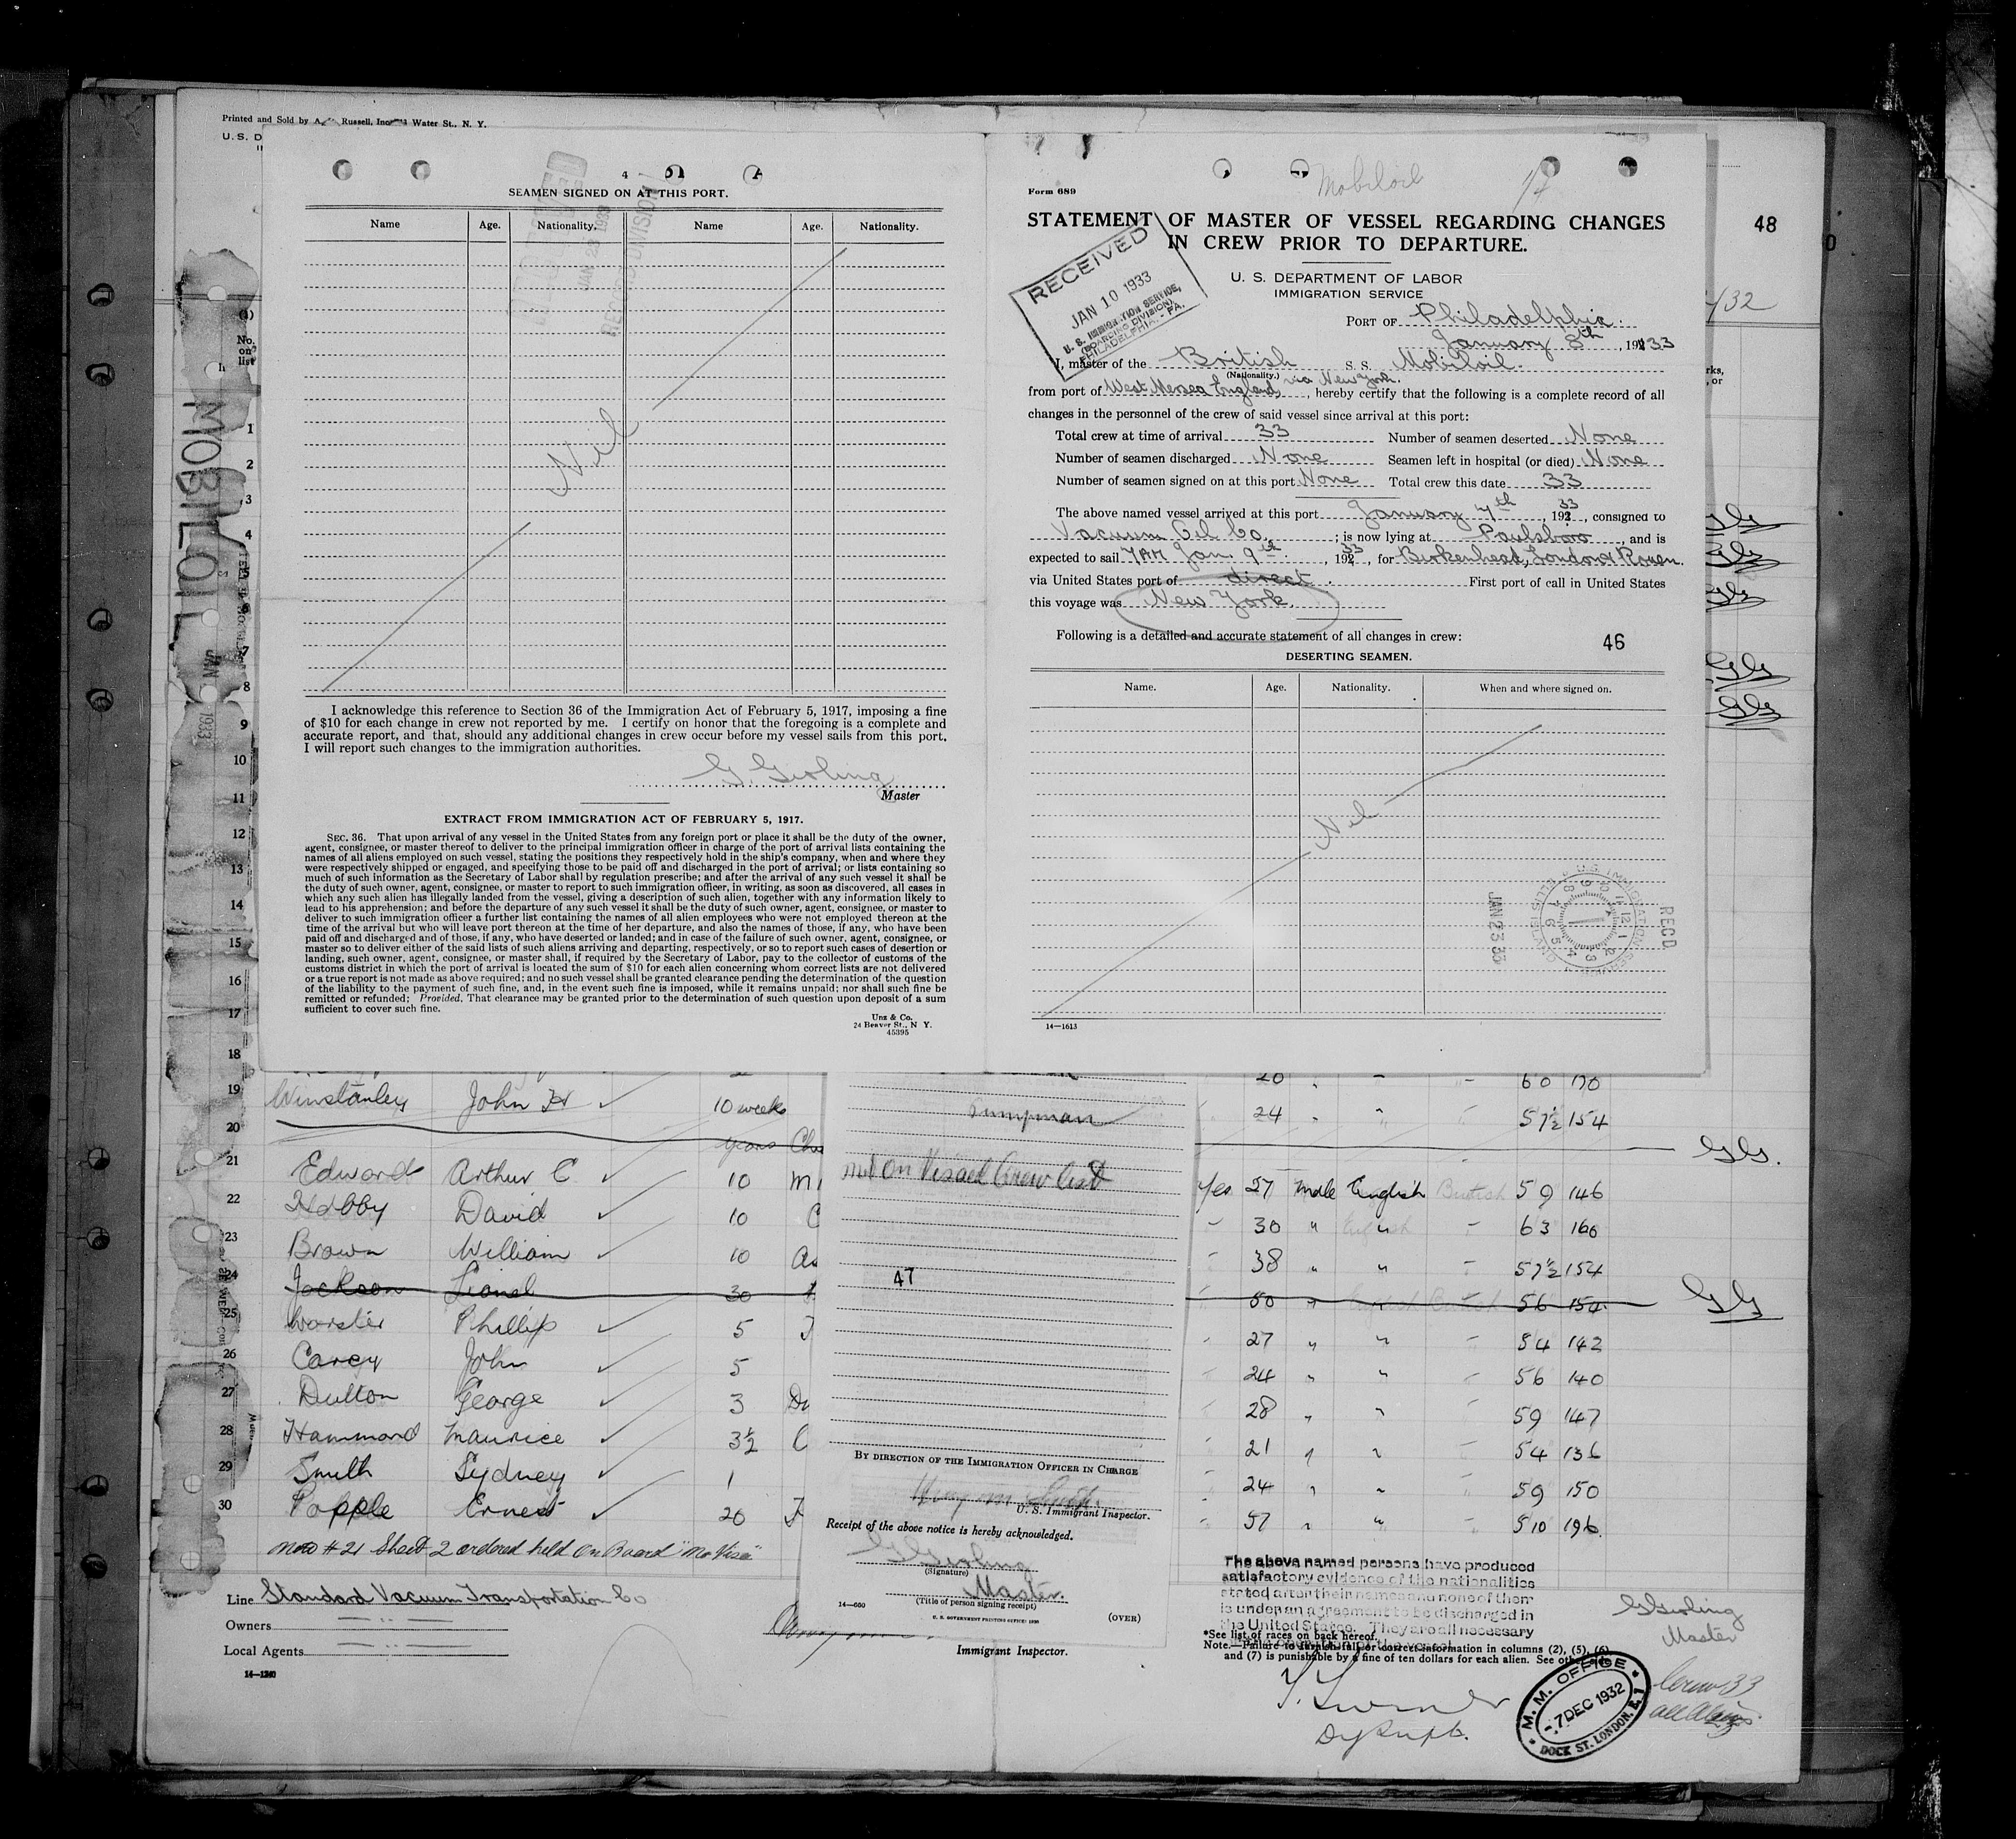 Printed and Sold by
Russell, Inc.
Water St., N. Y.
U. S. D
4
SEAMEN SIGNED ON AT THIS PORT.
Name Age. Nationality. Name Age. Nationality.
JAN 23 1933
RECORDS DIVISION
Nil
I acknowledge this reference to Section 36 of the Immigration Act of February 5, 1917, imposing a fine
of $10 for each change in crew not reported by me. I certify on honor that the foregoing is a complete and
accurate report, and that, should any additional changes in crew occur before my vessel sails from this port,
I will report such changes to the immigration authorities.
G. Girling
Master
EXTRACT FROM IMMIGRATION ACT OF FEBRUARY 5, 1917.
SEC. 36. That upon arrival of any vessel in the United States from any foreign port or place it shall be the duty of the owner,
agent, consignee, or master thereof to deliver to the principal immigration officer in charge of the port of arrival lists containing the
names of all aliens employed on such vessel, stating the positions they respectively hold in the ship's company, when and where they
were respectively shipped or engaged, and specifying those to be paid off and discharged in the port of arrival; or lists containing so
much of such information as the Secretary of Labor shall by regulation prescribe; and after the arrival of any such vessel it shall be
the duty of such owner, agent, consignee, or master to report to such immigration officer, in writing, as soon as discovered, all cases in
which any such alien has illegally landed from the vessel, giving a description of such alien, together with any information likely to
lead to his apprehension; and before the departure of any such vessel it shall be the duty of such owner, agent, consignee, or master to
deliver to such immigration officer a further list containing the names of all alien employees who were not employed thereon at the
time of the arrival but who will leave port thereon at the time of her departure, and also the names of those, if any, who have been
paid off and discharged and of those, if any, who have deserted or landed; and in case of the failure of such owner, agent, consignee, or
master so to deliver either of the said lists of such aliens arriving and departing, respectively, or so to report such cases of desertion or
landing, such owner, agent, consignee, or master shall, if required by the Secretary of Labor, pay to the collector of customs of the
customs district in which the port of arrival is located the sum of $10 for each alien concerning whom correct lists are not delivered
or a true report is not made as above required; and no such vessel shall be granted clearance pending the determination of the question
of the liability to the payment of such fine, and, in the event such fine is imposed, while it remains unpaid; nor shall such fine be
remitted or refunded; Provided, That clearance may be granted prior to the determination of such question upon deposit of a sum
sufficient to cover such fine.
Unz & Co.
24 Beaver St., N. Y.
45395
Mobiloil
Form 689
STATEMENT OF MASTER OF VESSEL REGARDING CHANGES
IN CREW PRIOR TO DEPARTURE.
48
U. S. DEPARTMENT OF LABOR
IMMIGRATION SERVICE
RECEIVED
JAN 10 1933
U. S. IMMIGRATION SERVICE,
(BOARDING DIVISION)
PHILADELPHIA, - PA.
PORT OF Philadelphia.
January 8th, 1933
I, master of the British S. S. Mobiloil.
(Nationality.)
from port of West Mersea England, via New York., hereby certify that the following is a complete record of all
changes in the personnel of the crew of said vessel since arrival at this port:
Total crew at time of arrival 33 Number of seamen deserted None
Number of seamen discharged None Seamen left in hospital (or died) None
Number of seamen signed on at this port None Total crew this date 33
The above named vessel arrived at this port January 7th, 192 33, consigned to
Vacuum Oil Co.; is now lying at Paulsboro, and is
expected to sail 7AM Jan. 9th, 192 33, for Birkenhead, London & Rouen.
via United States port of direct. First port of call in United States
this voyage was New York.
Following is a detailed and accurate statement of all changes in crew:
46
DESERTING SEAMEN.
Name. Age. Nationality. When and where signed on.
Nil
U. S. IMMIGRATION SERVICE
REC'D
JAN 23 33
14—1613
/32
MOBILOIL
JAN
1933
No.
on
list
1
2
3
4
5
6
7
8
9
10
11
12
13
14
15
16
17
18
20 60 170
19 Winstanley John 10 weeks Pumpman 24 5 7½ 154
20 years
GG.
21 Edwards Arthur C 10 Yes 27 Male English British 5 9 146
not on Visaed Crew List
22 Hobby David 10 30 " " 63 160
23 Brown William 10 38 " " 5 7½ 154
24 Jackson Lionel 30 50 " 56 154 GG
47
25 Worster Phillip 5 27 " " 54 142
26 Carey John 5 24 " " 56 140
27 Dutton George 3 28 " " 59 147
28 Hammond Maurice 3½ 21 " " 54 136
29 Smith Sydney 1 24 " " 59 150
30 Popple Ernest 20 57 " " 5 10 196.
#21 Sheet 2 ordered held on Board "No Visa"
BY DIRECTION OF THE IMMIGRATION OFFICER IN CHARGE
U. S. Immigrant Inspector.
Receipt of the above notice is hereby acknowledged.
G Girling
(Signature)
Master.
(Title of person signing receipt)
14—660
U. S. GOVERNMENT PRINTING OFFICE: 1930
(OVER)
Immigrant Inspector.
Line Standard Vacuum Transportation Co
Owners
Local Agents
14—1240
The above named persons have produced
satisfactory evidence of the nationalities
stated after their names and none of them
is under an agreement to be discharged in
the United States. They are all necessary
*See list of races on back hereof.
Note.—Failure to furnish full or correct information in columns (2), (5), (6)
and (7) is punishable by a fine of ten dollars for each alien. See other
G Girling
Master
Crew 33
all Aliens.
Dy Supt.
M. M. OFFICE
-7 DEC 1932
DOCK ST. LONDON, E.1